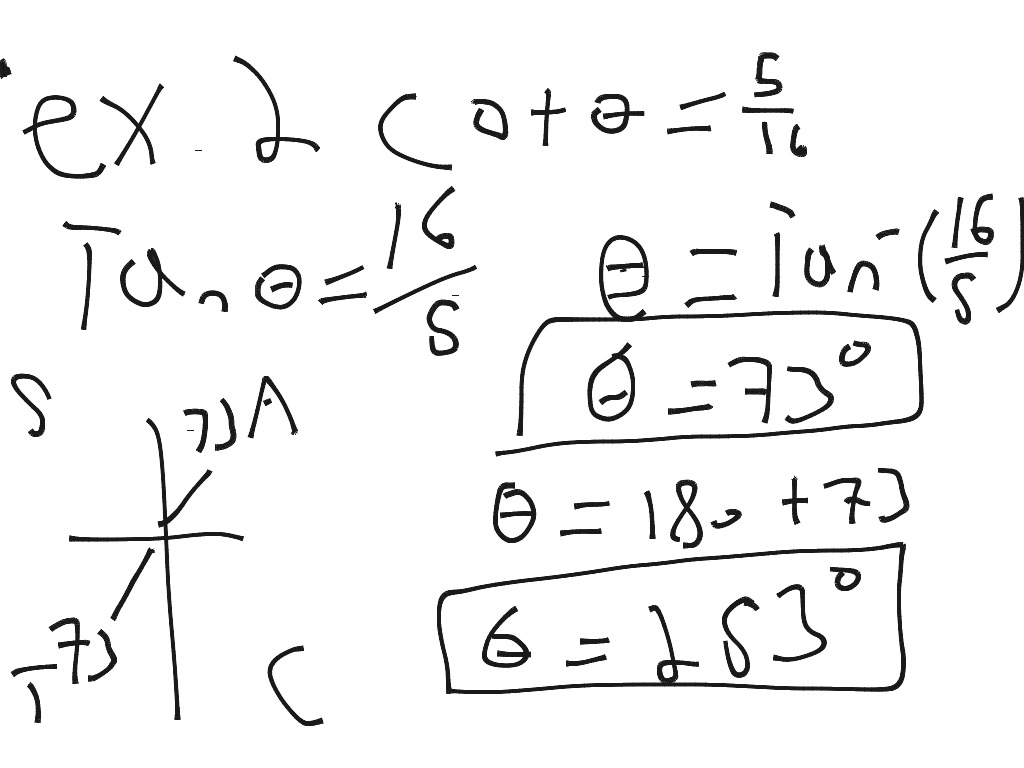 ex. 2 cot θ = 5/16
Tan θ = 16/5
θ = Tan⁻(16/5)
θ = 73°
S 73 A
θ = 180 + 73
73
T C
θ = 253°